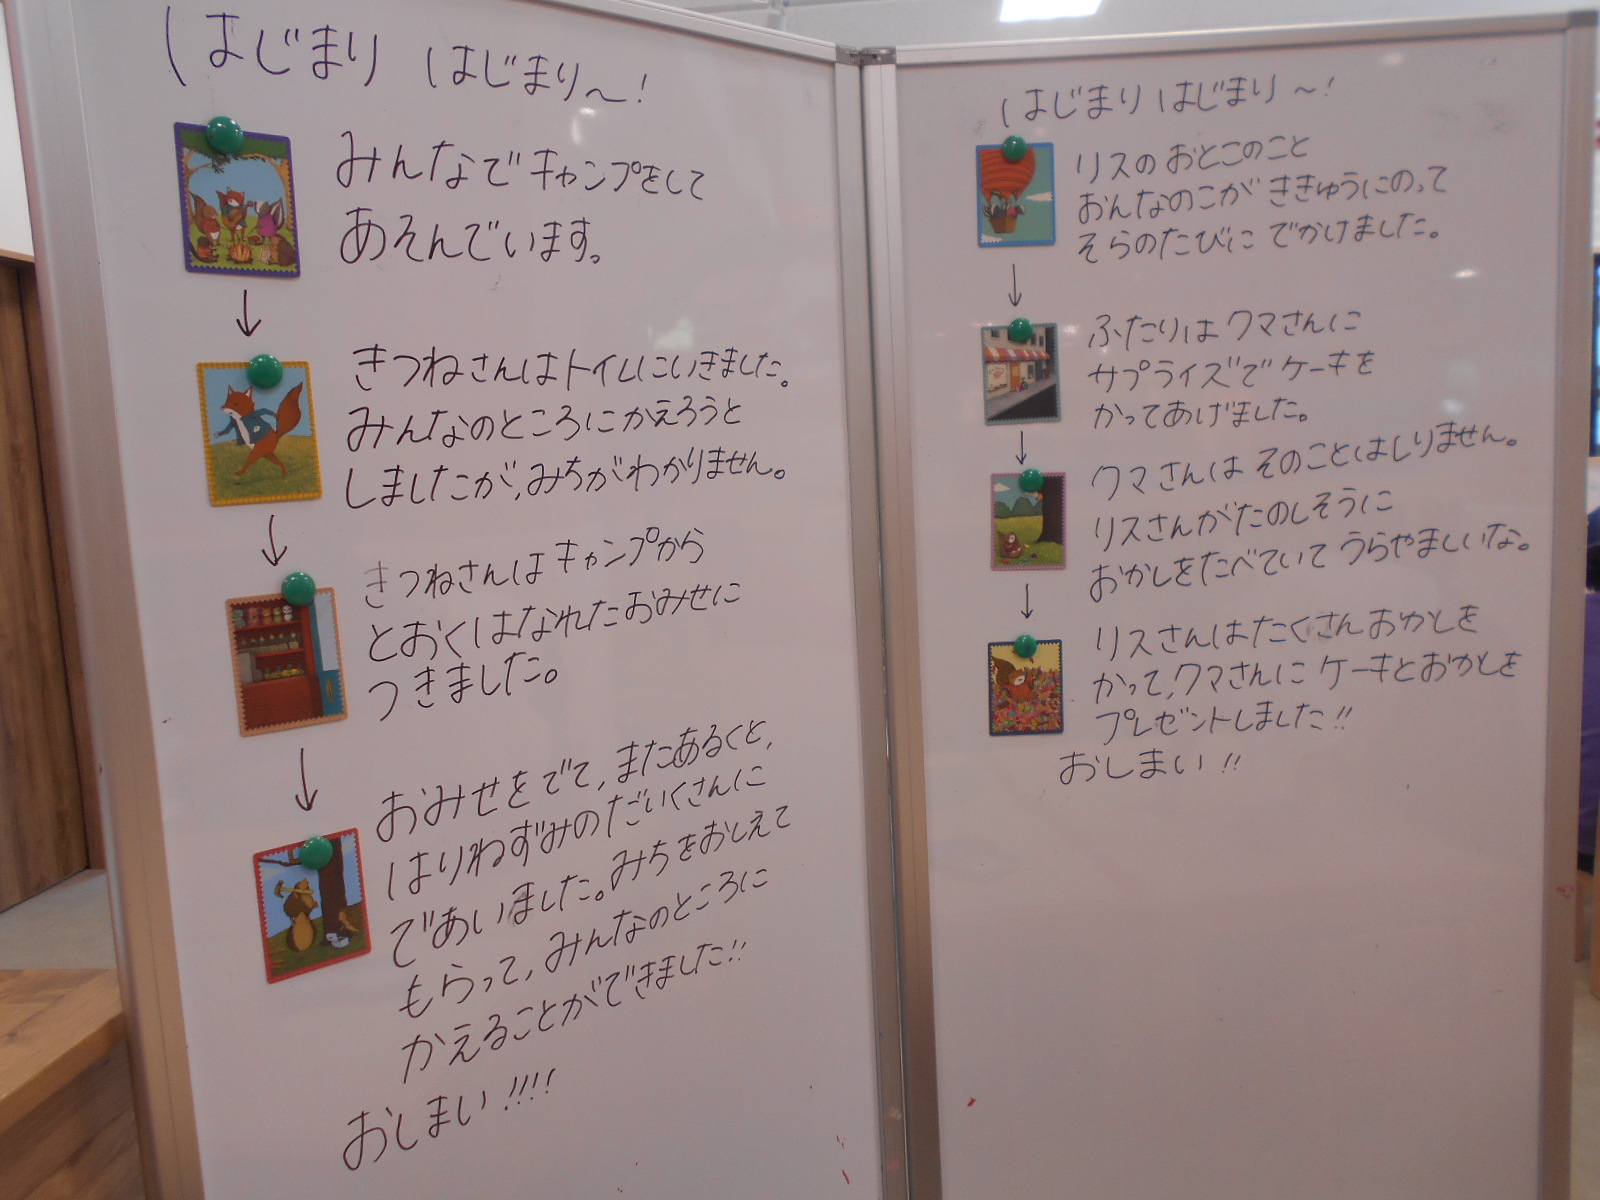 はじまり はじまり〜!
みんなでキャンプをして
あそんでいます。
きつねさんはトイレにいきました。
みんなのところにかえろうと
しましたが、みちがわかりません。
きつねさんはキャンプから
とおくはなれたおみせに
つきました。
おみせをでて、またあるくと、
はりねずみのだいくさんに
であいました。みちをおしえて
もらって、みんなのところに
かえることができました!!
おしまい!!!!
はじまり はじまり〜!
リスのおとこのこと
おんなのこが ききゅうにのって
そらのたびに でかけました。
ふたりは クマさんに
サプライズで ケーキを
かってあげました。
クマさんは そのことはしりません。
リスさんがたのしそうに
おかしをたべていて うらやましいな。
リスさんはたくさん おかしを
かって、クマさんに ケーキとおかしを
プレゼントしました!!
おしまい!!